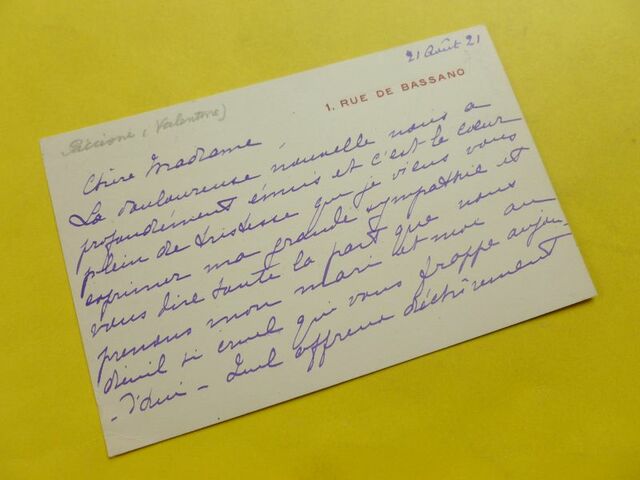 21 Août 21
1. RUE DE BASSANO
Piccioni (Valentine)
Chère Madame
La douloureuse nouvelle nous a
profondément émus et c'est le cœur
plein de tristesse que je viens vous
exprimer ma grande sympathie et
vous dire toute la part que nous
prenons mon mari et moi au
deuil si cruel qui vous frappe aujour-
-d'hui - Quel affreux déchirement